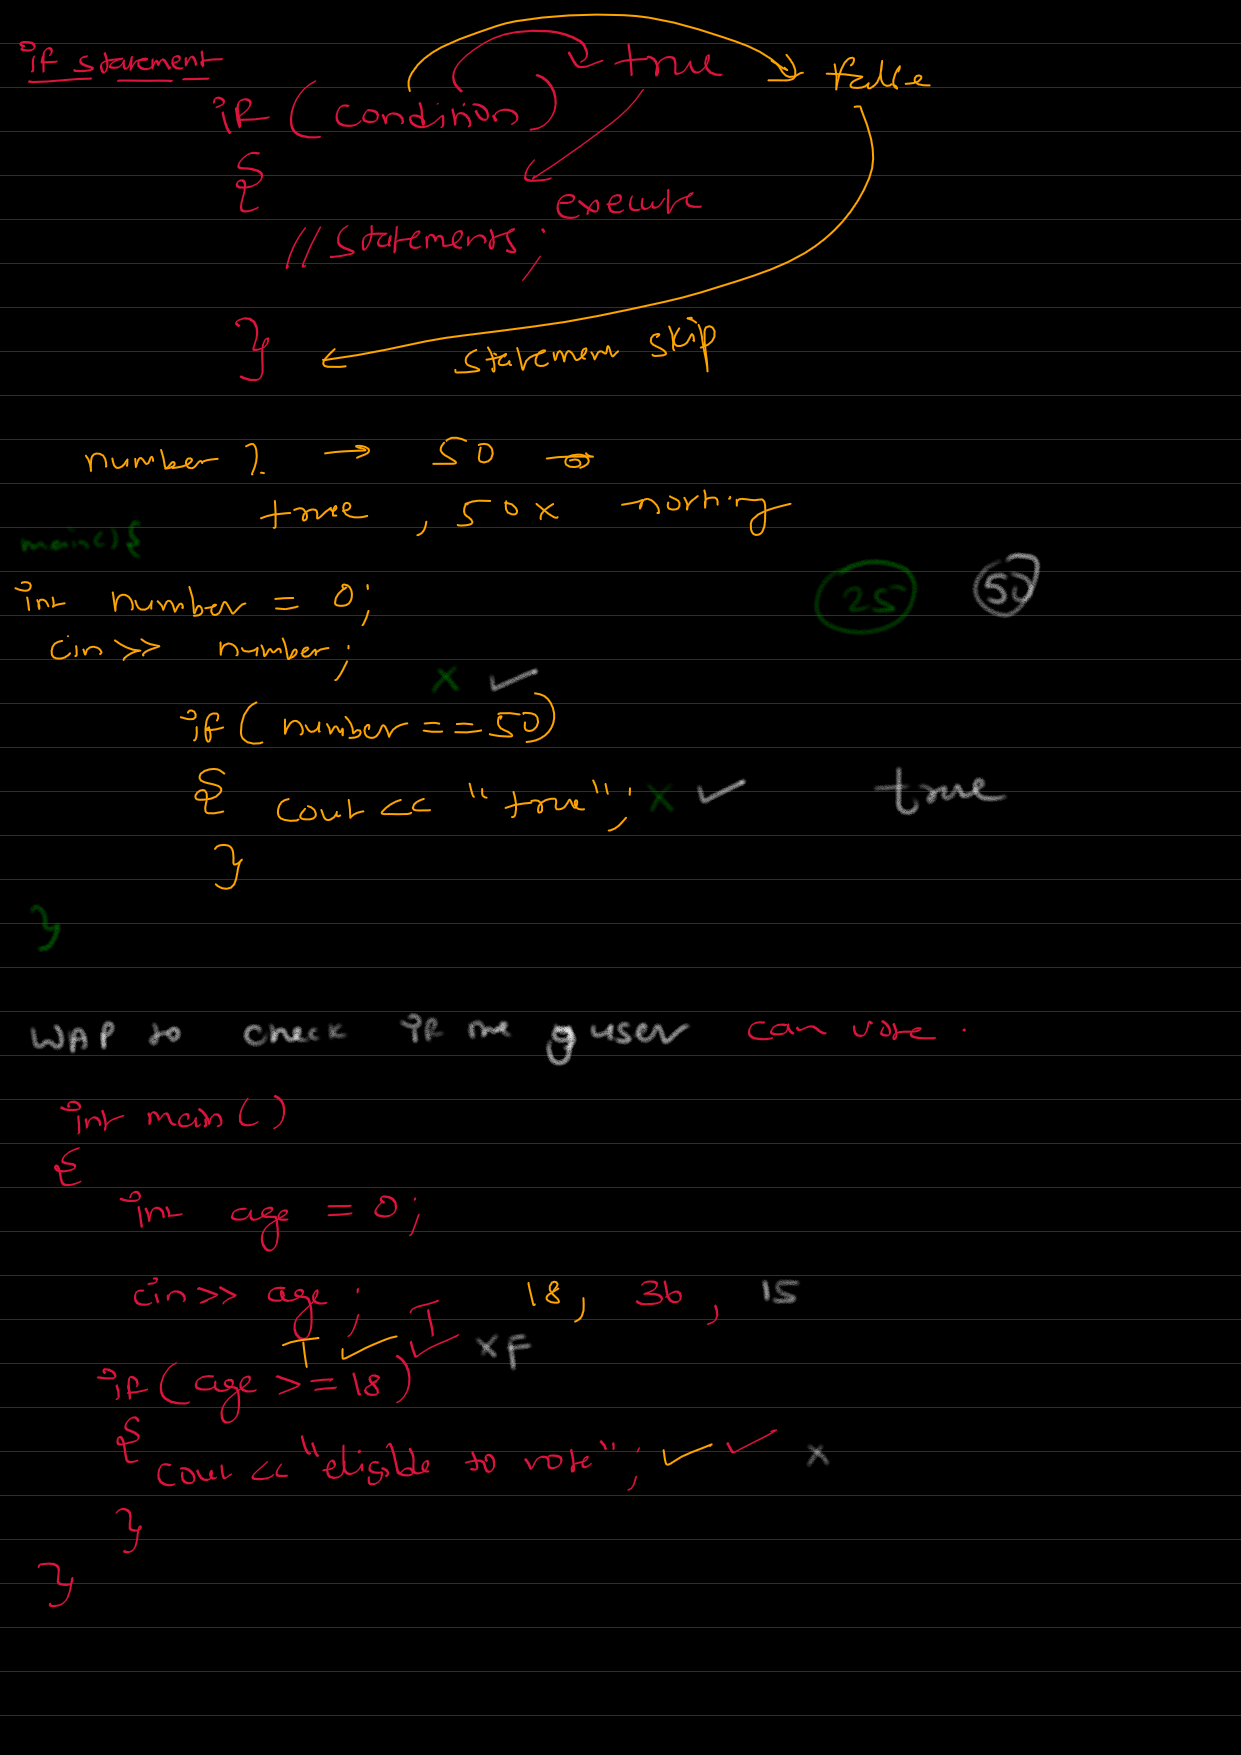 if statement
true false
if ( condition )
{
execute
// statements ;
}
statement skip
number → 50
true , 50 x nothing
main() {
int number = 0; 25 50
cin >> number;
x ✓
if ( number == 50)
{ cout << "true"; x ✓ true
}
}
WAP to check if the user can vote .
int main ( )
{
int age = 0;
cin >> age ; 18, 36, 15
T ✓ T ✓ x F
if ( age >= 18 )
{
cout << "eligible to vote"; ✓ ✓ x
}
}